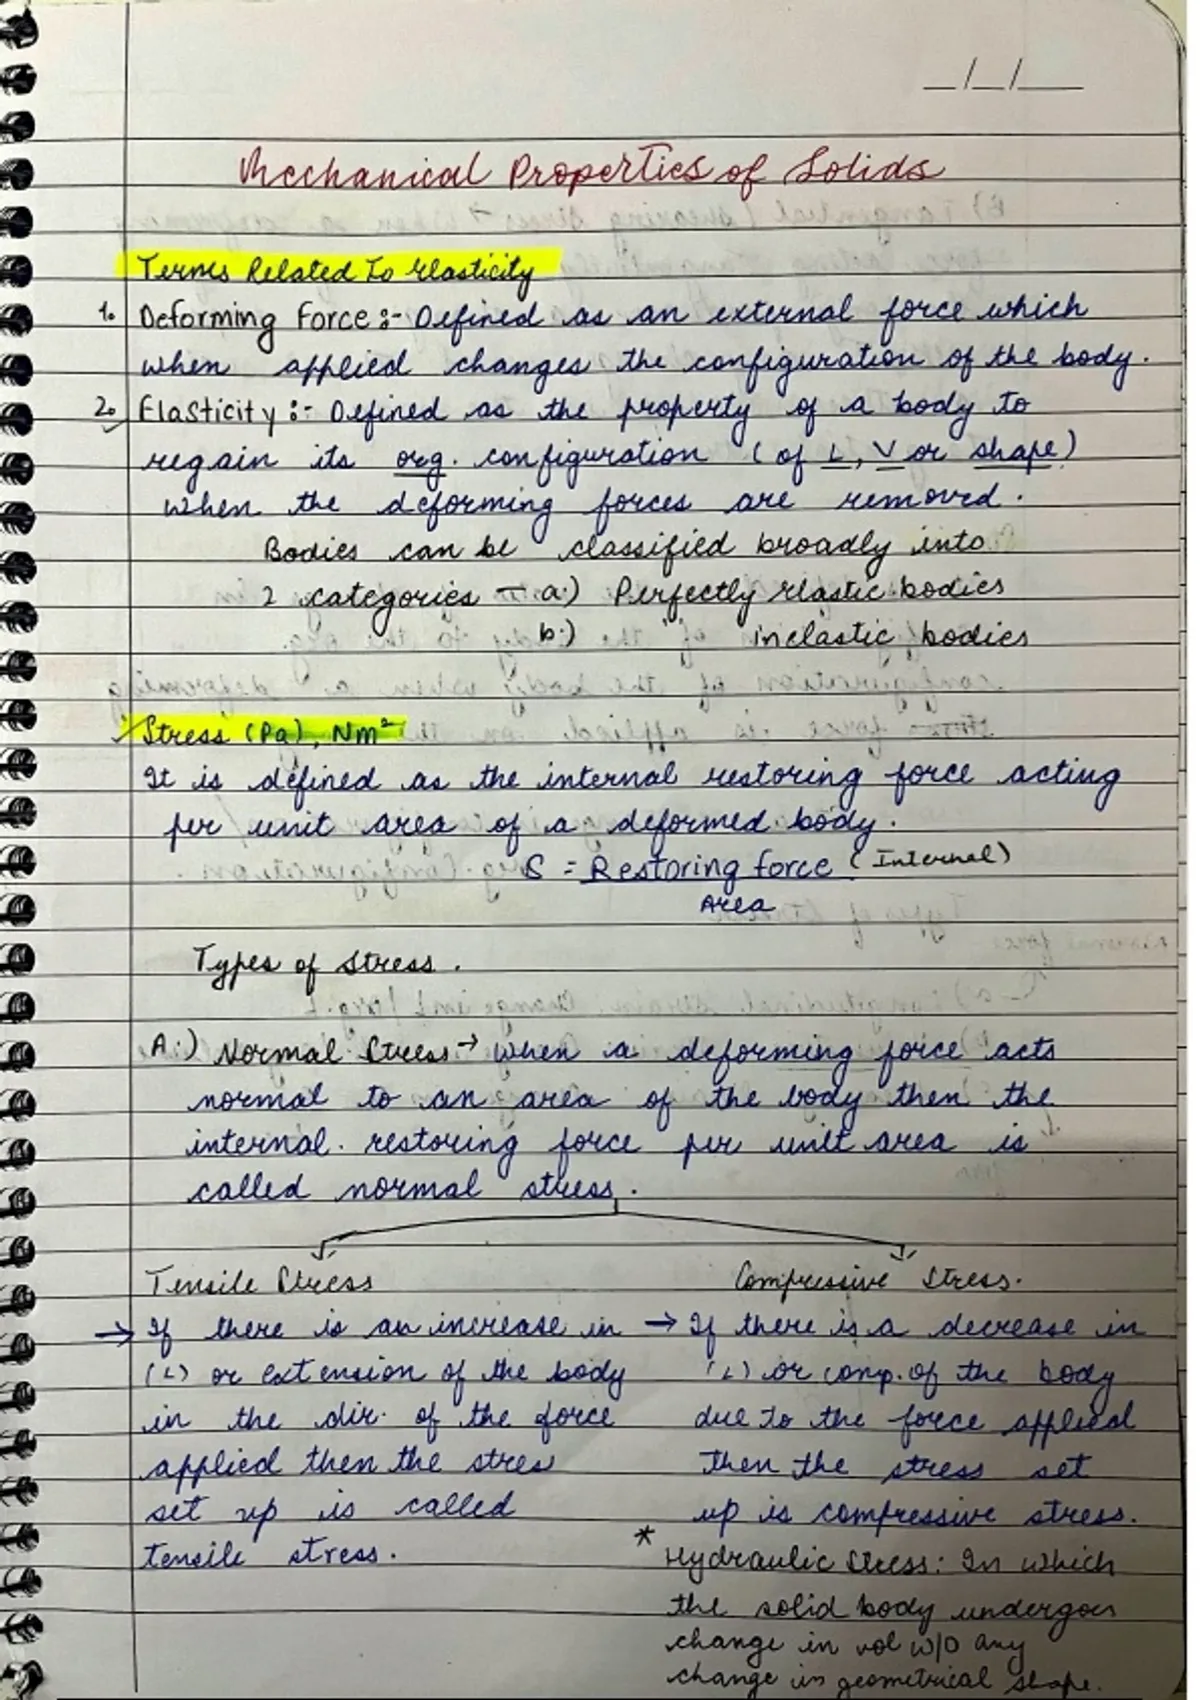 _/_/___
Mechanical Properties of Solids
Terms Related To Elasticity
1. Deforming Force :- Defined as an external force which
when applied changes the configuration of the body.
2. Elasticity :- Defined as the property of a body to
regain its org. configuration (of L, V or shape)
when the deforming forces are removed.
Bodies can be classified broadly into
2 categories - a.) Perfectly elastic bodies
b.) inelastic bodies
Stress (Pa), Nm²
It is defined as the internal restoring force acting
per unit area of a deformed body.
S = Restoring force (Internal)
Area
Types of Stress.
A.) Normal Stress → When a deforming force acts
normal to an area of the body then the
internal restoring force per unit area is
called normal stress.
Tensile Stress
Compressive Stress.
→ If there is an increase in
(L) or extension of the body
in the dir. of the force
applied then the stres
set up is called
tensile stress.
→ If there is a decrease in
(L) or comp. of the body
due to the force applied
then the stress set
up is compressive stress.
* Hydraulic Stress: In which
the solid body undergoes
change in vol w/o any
change in geometrical shape.